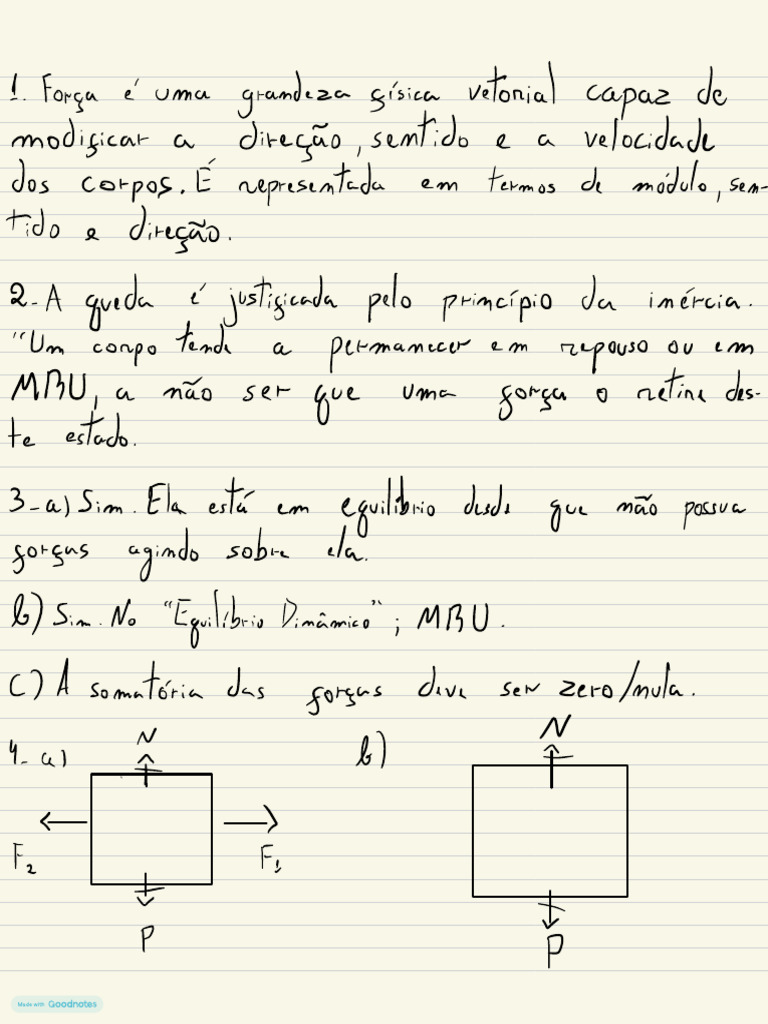 1. Força é uma grandeza física vetorial capaz de
modificar a direção, sentido e a velocidade
dos corpos. É representada em termos de módulo, sen-
tido e direção.
2- A queda é justificada pelo princípio da inércia.
"Um corpo tende a permanecer em repouso ou em
MRU, a não ser que uma força o retire des-
te estado.
3-a) Sim. Ela está em equilíbrio desde que não possua
forças agindo sobre ela.
b) Sim. No "Equilíbrio Dinâmico"; MRU.
C) A somatória das forças deve ser zero/nula.
4- a) N b) N
F2 F1
P P
Made with Goodnotes